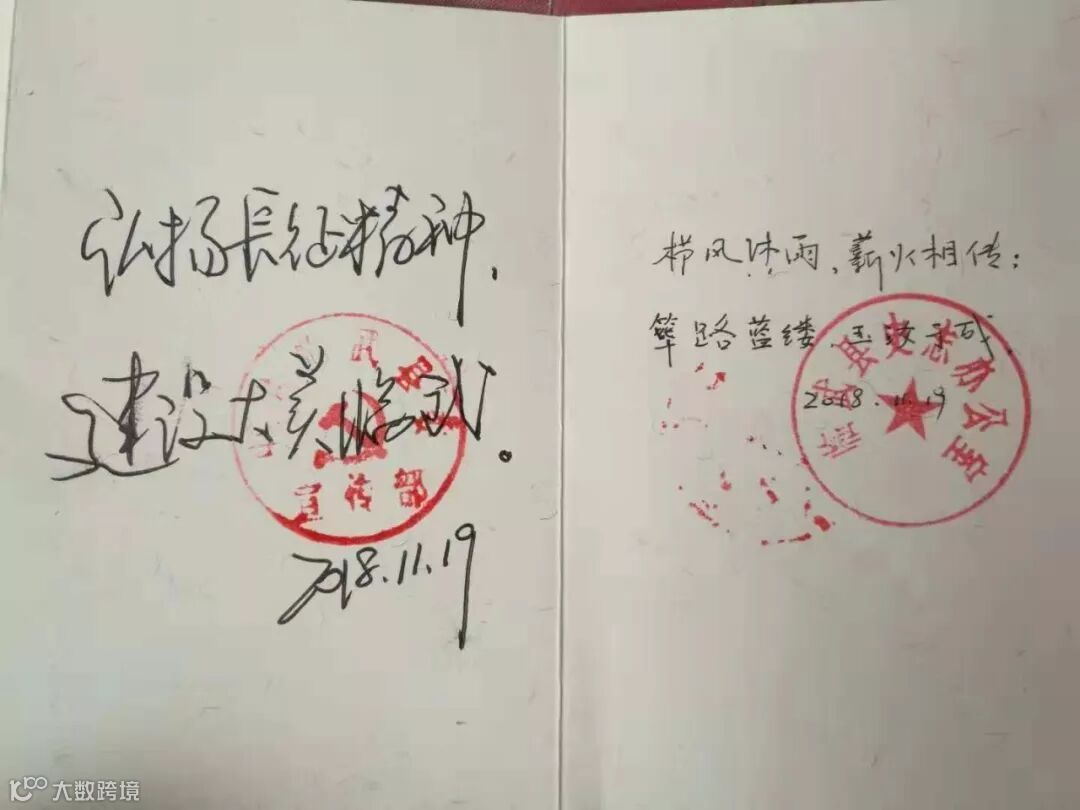 弘扬長征精神，
建设大美临武。
宣传部
2018.11.19
栉风沐雨、薪火相传；
筚路蓝缕、玉汝于成．
2018.11.19
临武县史志办公室
大数跨境